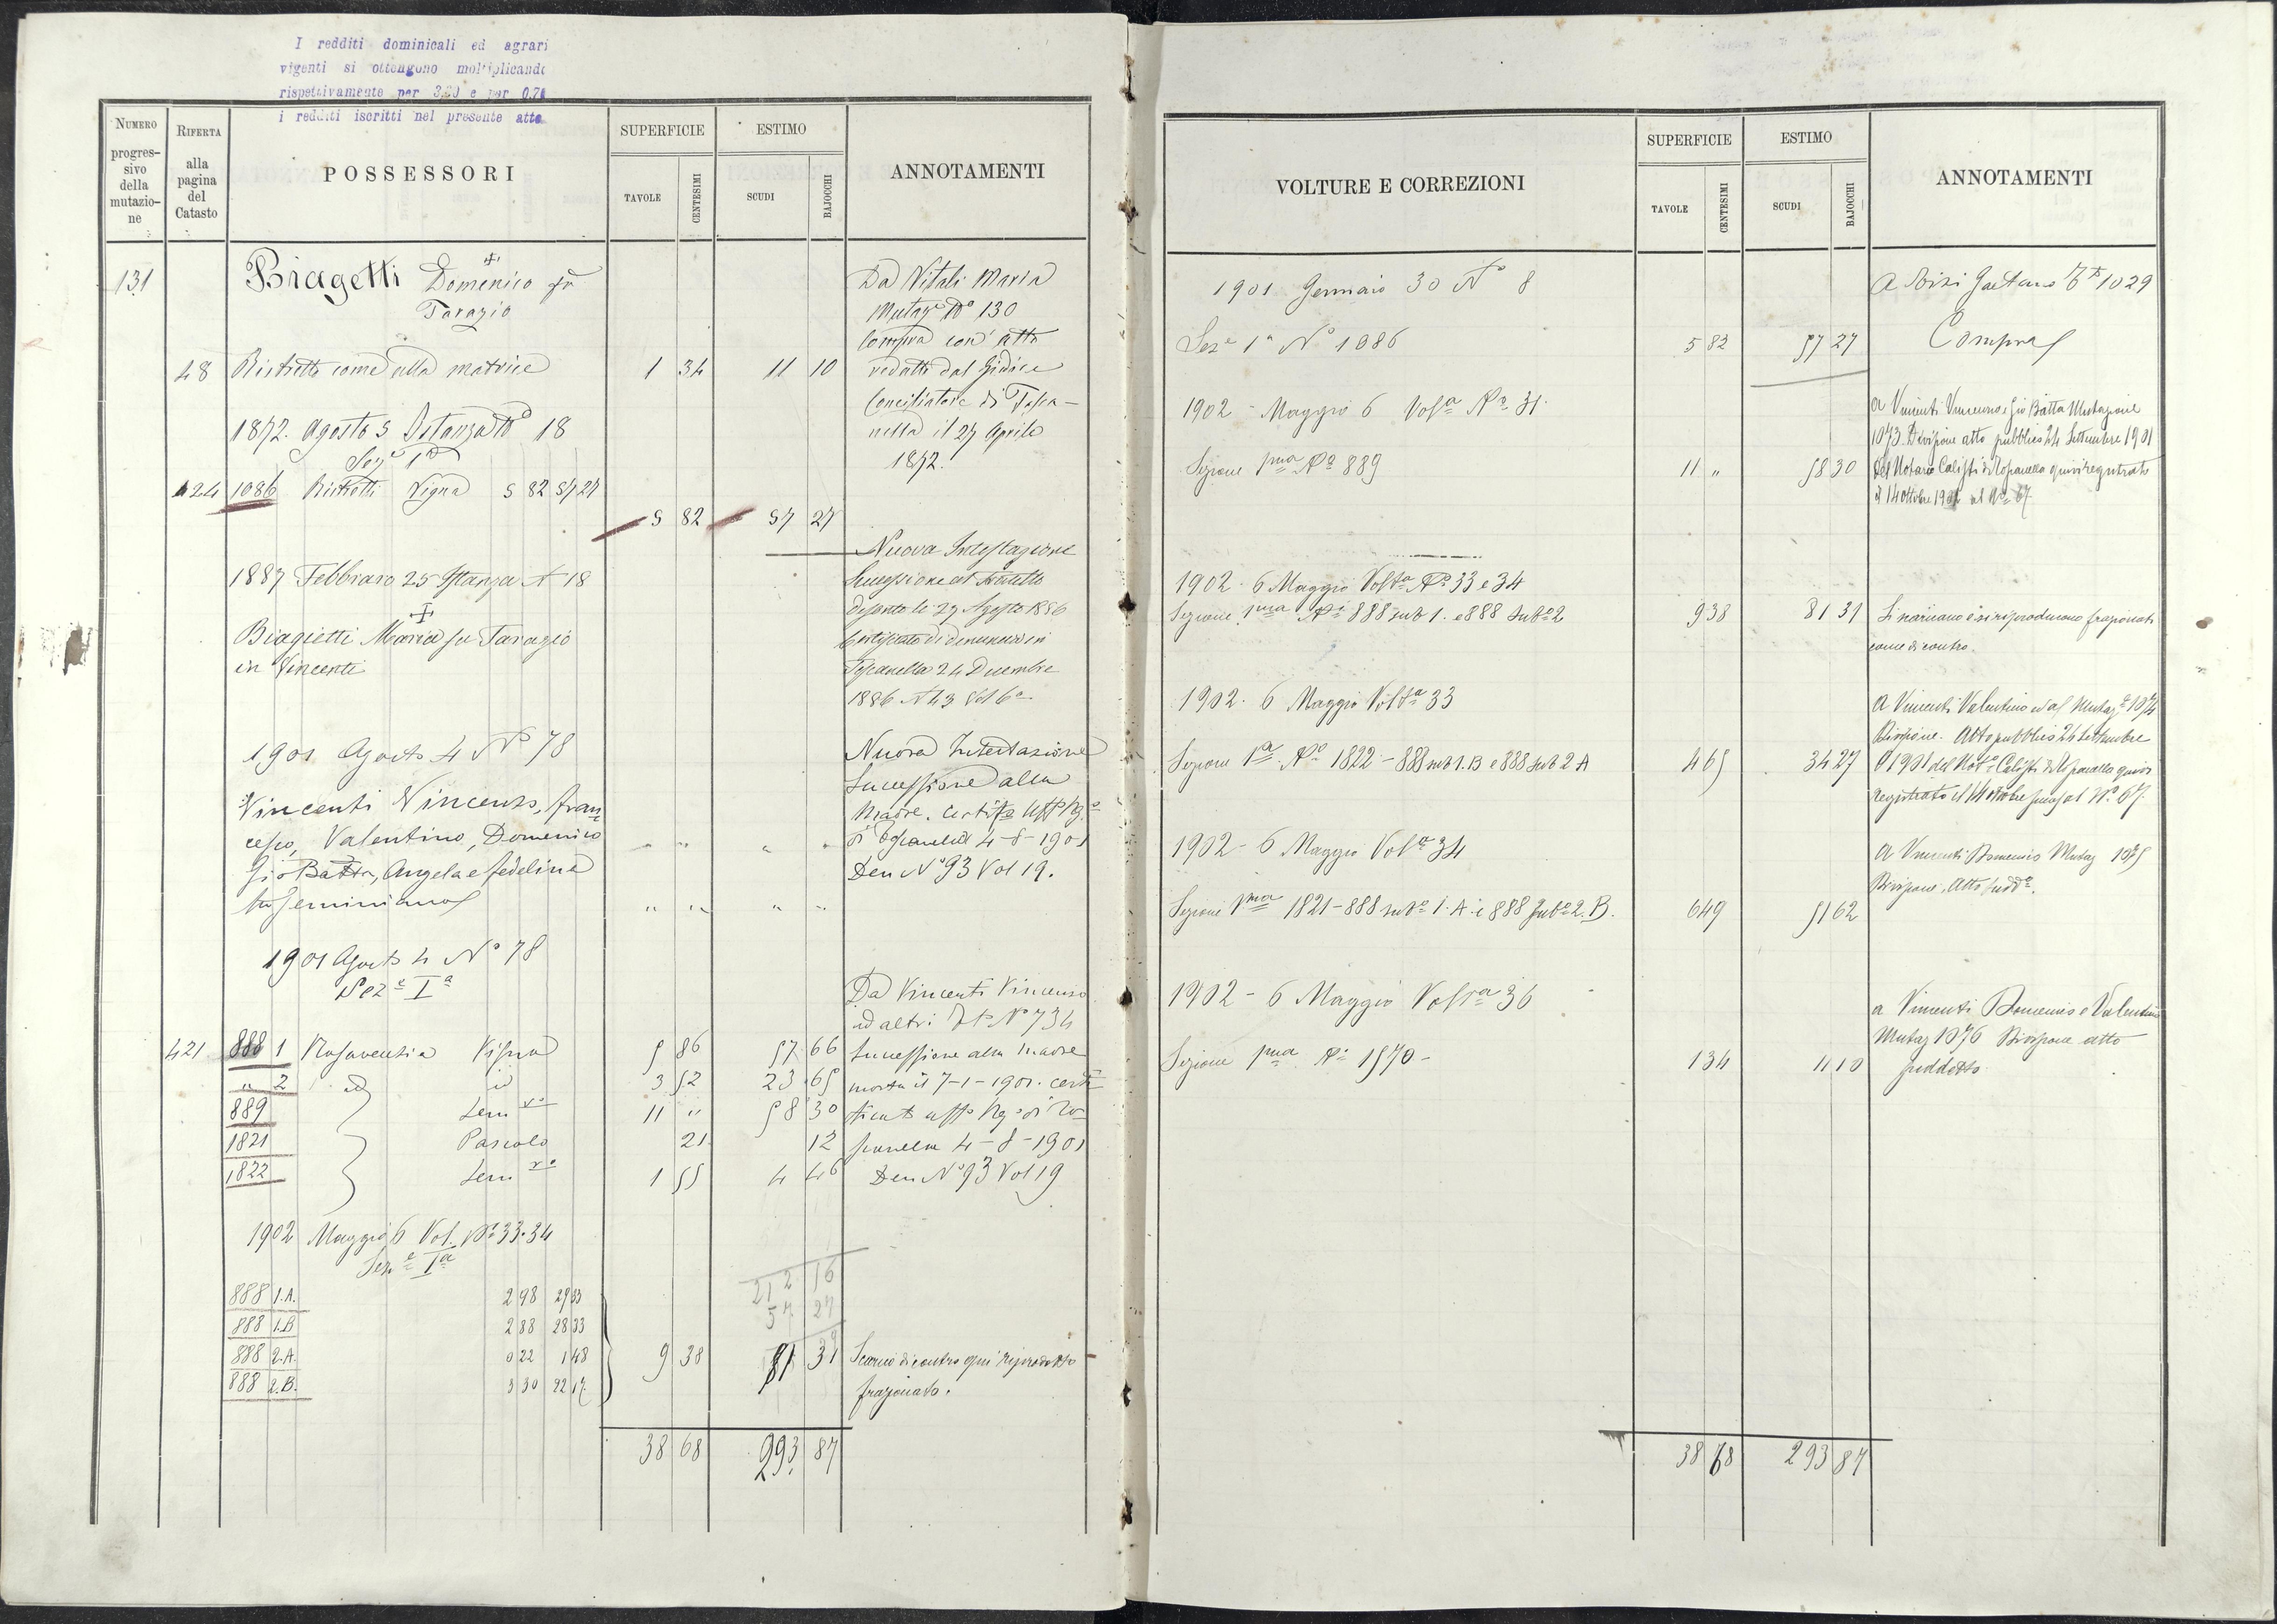 I redditi dominicali ed agrari
vigenti si ottengono moltiplicando
rispettivamente per 3,20 e per 0,70
i redditi iscritti nel presente atto
NUMERO progres- sivo della mutazio- ne
RIFERTA alla pagina del Catasto
POSSESSORI
SUPERFICIE
TAVOLE
CENTESIMI
ESTIMO
SCUDI
BAJOCCHI
ANNOTAMENTI
131 Biagetti Domenico fù
Tarazio
48 Ristretto come alla matrice 1 34 11 10
1872. Agosto 5 Istanza N° 18
Sez.e 1a
424 1086 Ristretti Vigna 5 82 57 27
5 82 57 27
Da Vitali Maria
Mutaz.e N° 130
Compra con atto
redatto dal Giudice
Conciliatore di Tosca-
nella il 27 Aprile
1872.
1887 Febbraro 25 Istanza N 18
Biagietti Maria fu Tarazio
in Vincenti
Nuova Intestazione
Successione al fratello
defonto li 27 Agosto 1886
Certificato di denuncia in
Toscanella 24 Decembre
1886 N 43 Vol 6°
1901 Agosto 4 N° 78
Vincenti Vincenzo, Fran
cesco, Valentino, Domenico
Gio Batta, Angela e Fedelina
fu Geminiano
Nuova Intestazione
Successione alla
Madre. Certif.to Uff° Reg.°
di Toscanella 4-8-1901
Den N° 93 Vol 19.
1901 Agosto 4 N° 78
Sez.e Ia
421 888 1 Vigna 5 86 57 66
" 2 id id 3 52 23 65
889 Sem vo 11 " 58 30
1821 Pascolo 21 12
1822 Sem vo 1 55 4 46
Da Vincenti Vincenzo
ed altri N° 734
Successione alla madre
morta il 7-1-1901. Certi
ficato Uff° Reg° di To
scanella 4-8-1901
Den N° 93 Vol 19
1902 Maggio 6 Vol. Ni 33.34
Sez.e Ia
212 16
57 27
888 1.A. 2 98 29 33
888 1.B 2 88 28 33
888 2.A. 0 22 1 48
888 2.B. 3 30 22 17
9 38 81 31 Scarico di contro qui riprodotto
frazionato.
38 68 293 87
VOLTURE E CORREZIONI
SUPERFICIE
TAVOLE
CENTESIMI
ESTIMO
SCUDI
BAJOCCHI
ANNOTAMENTI
1901 Gennaio 30 N° 8
Sez.e 1a N° 1086 5 82 57 27
A Gaetano 1029
Compra
1902 - Maggio 6 Vola No 31.
Sezione 1ma No 889 11 " 58 30
A Vincenti Vincenzo e Gio Batta Mutazione
1073. Divisione atto pubblico 24 Settembre 1901
del Notaro Calisti di Toscanella quivi registrato
il 14 Ottobre 1901 al No 67.
1902. 6 Maggio Volta No 33 e 34
Sezione 1ma Ni 888 sub 1. e 888 Sub° 2 9 38 81 31 Si scaricano e si riproducono frazionati
come di contro.
1902. 6 Maggio Volta 33
Sezione 1a. No 1822 - 888 sub 1.B e 888 sub 2 A 4 65 34 27
A Vincenti Valentino Mutaz.e 1074
Divisione. Atto pubblico 24 Settembre
1901 del Not° Calisti di Toscanella quivi
registrato il 14 Ottobre al N° 67.
1902 - 6 Maggio Vola 34
Sezione 1ma 1821 - 888 sub° 1.A. e 888 Sub° 2.B. 6 49 51 62
A Vincenti Domenico Mutaz 1075
Divisione. Atto sudd°.
1902 - 6 Maggio Volta 36
Sezione 1ma No 1570 - 1 34 11 10
a Vincenti Domenico e Valentino
Mutaz 1076 Divisione atto
suddetto.
38 68 293 87